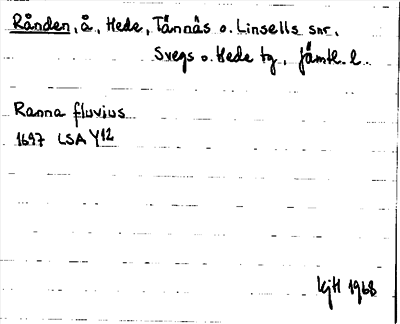 Rånden, å, Hede, Tännäs o. Linsells snr.
Svegs o. Hede tg, Jämtl. l.
Ranna fluvius
1697 LSA Y12
KjH 1968